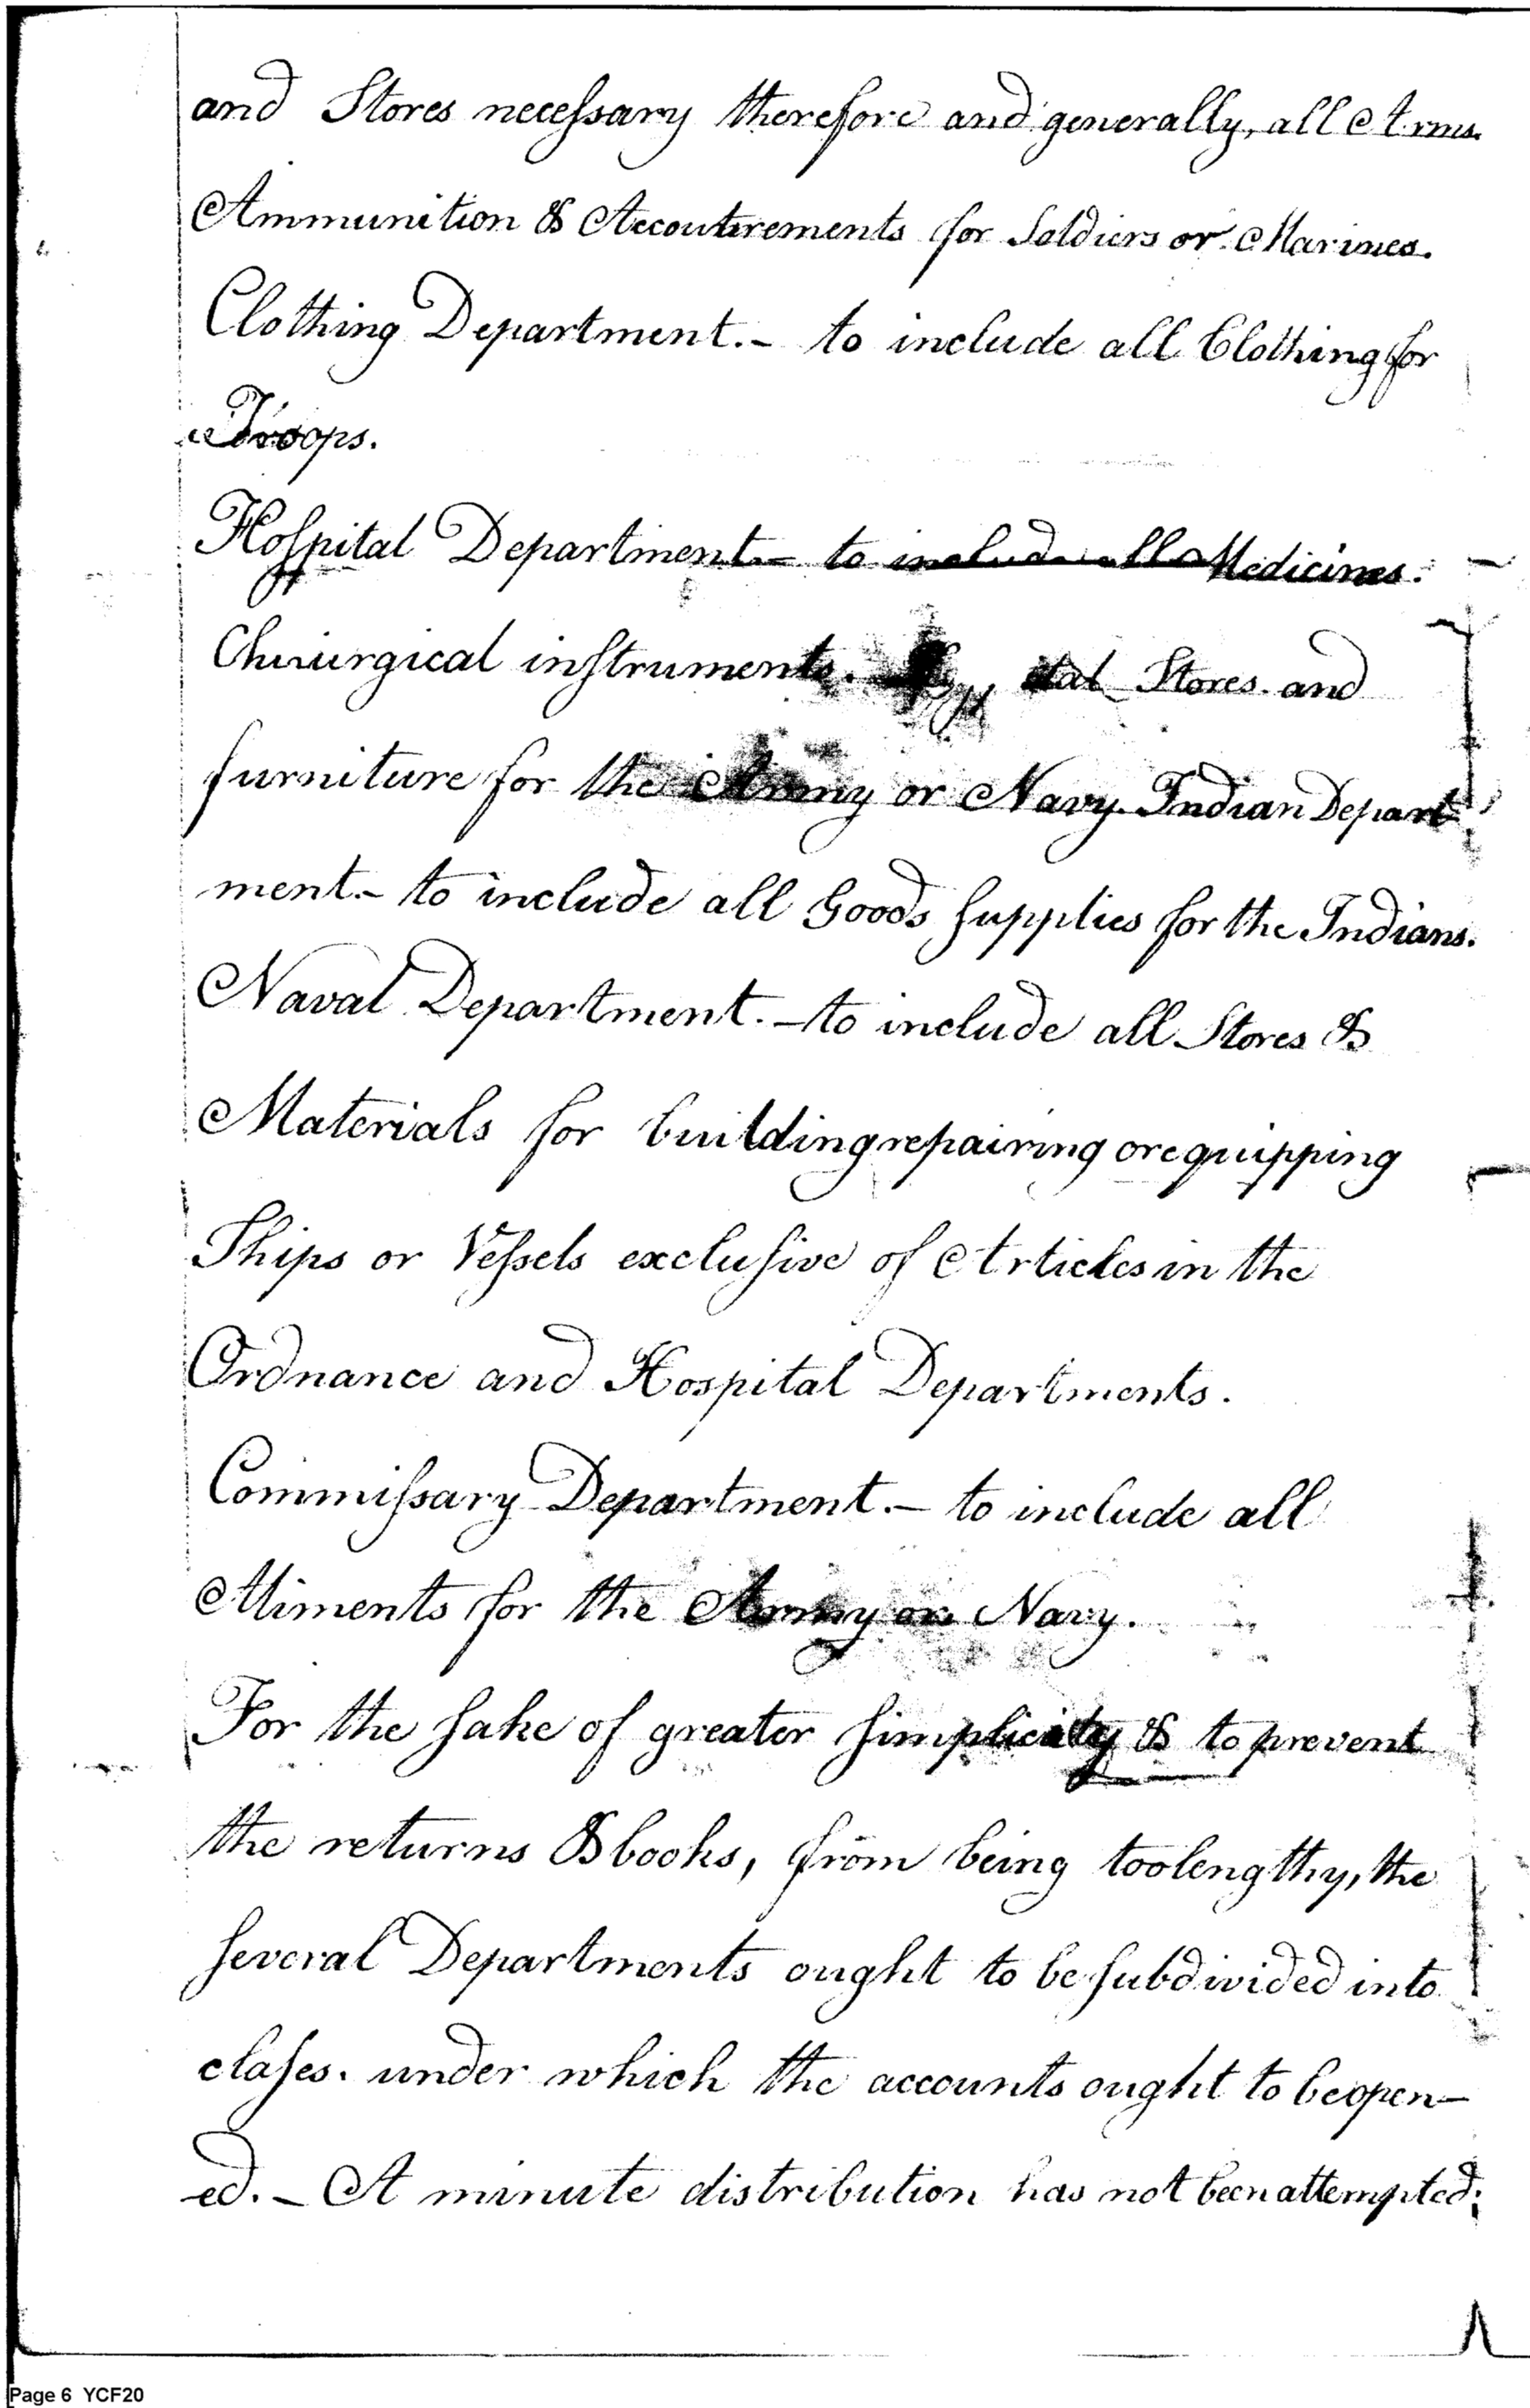 and Stores necessary therefore and generally, all Arms.
Ammunition & Accoutrements for Soldiers or Marines.
Clothing Department.- to include all Clothing for
Troops.
Hospital Department - to include all Medicines.
Chirurgical instruments. Stores and
furniture for the Army or Navy. Indian Depart
ment.- to include all Goods supplies for the Indians.
Naval Department. - to include all Stores &
Materials for building repairing or equipping
Ships or Vessels exclusive of Articles in the
Ordnance and Hospital Departments.
Commissary Department. - to include all
Aliments for the Army or Navy.
For the sake of greater simplicity & to prevent
the returns & books, from being too lengthy, the
several Departments ought to be subdivided into
classes. under which the accounts ought to be open-
ed. - A minute distribution has not been attempted;
Page 6 YCF20